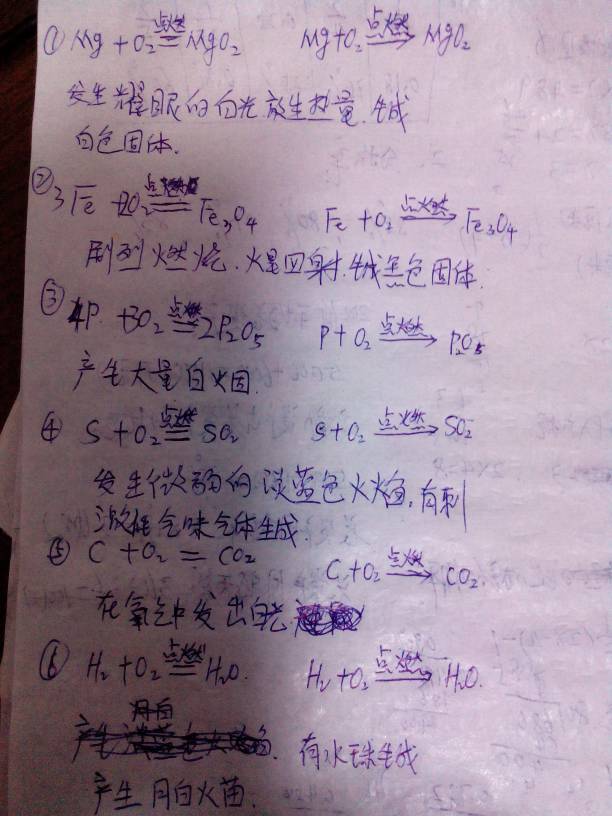 ① Mg + O₂ 点燃 == MgO₂ Mg+O₂ 点燃 → MgO₂
发生耀眼的白光.放出热量.生成
白色固体.
② 3Fe + 2O₂ 点燃 == Fe₃O₄ Fe + O₂ 点燃 → Fe₃O₄
剧烈燃烧.火星四射.生成黑色固体.
③ 4P + 5O₂ 点燃 == 2P₂O₅ P + O₂ 点燃 → P₂O₅
产生大量白烟.
④ S + O₂ 点燃 == SO₂ S + O₂ 点燃 → SO₂
发生微弱的淡蓝色火焰,有刺
激性气味气体生成.
⑤ C + O₂ = CO₂ C + O₂ 点燃 → CO₂
在氧气中发出白光
⑥ H₂ + O₂ 点燃 == H₂O. H₂ + O₂ 点燃 → H₂O.
有水珠生成
产生月白火苗.